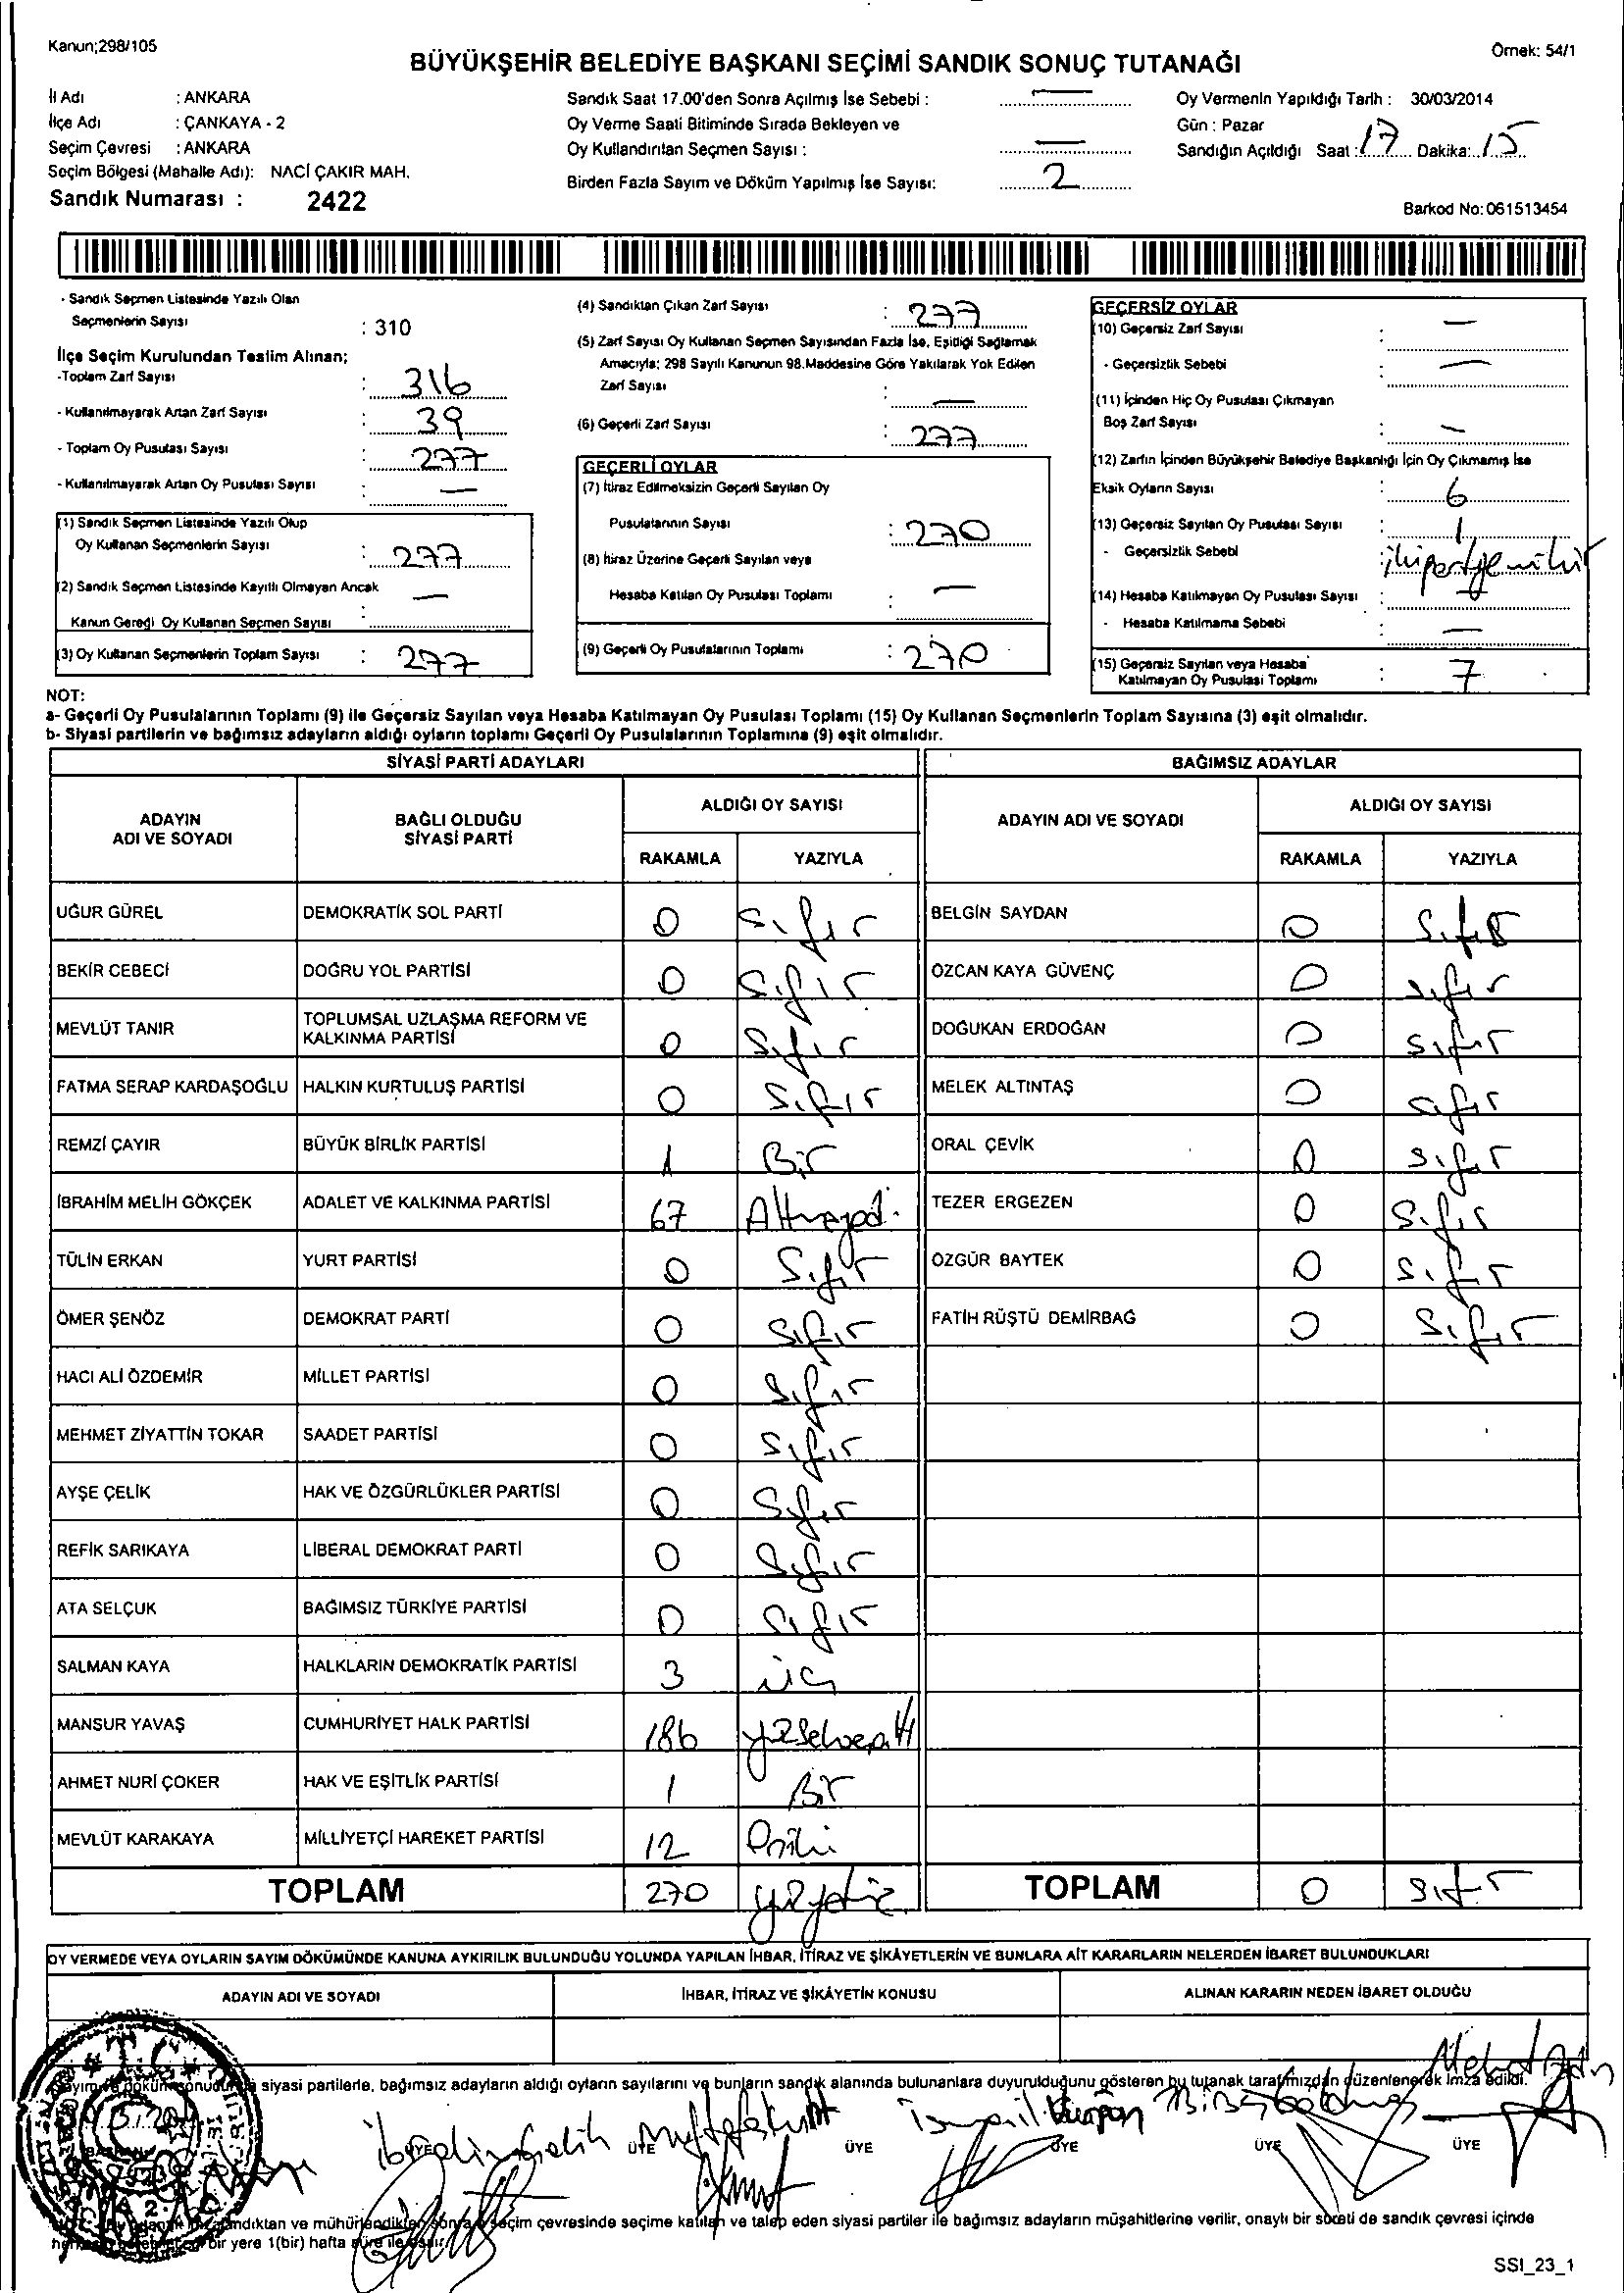 Kanun;298/105
Örnek: 54/1
BÜYÜKŞEHİR BELEDİYE BAŞKANI SEÇİMİ SANDIK SONUÇ TUTANAĞI
İl Adı : ANKARA
İlçe Adı : ÇANKAYA - 2
Seçim Çevresi : ANKARA
Seçim Bölgesi (Mahalle Adı): NACİ ÇAKIR MAH.
Sandık Numarası : 2422
Sandık Saat 17.00'den Sonra Açılmış İse Sebebi : —
Oy Verme Saati Bitiminde Sırada Bekleyen ve
Oy Kullandırılan Seçmen Sayısı : —
Birden Fazla Sayım ve Döküm Yapılmış İse Sayısı: 2
Oy Vermenin Yapıldığı Tarih : 30/03/2014
Gün : Pazar
Sandığın Açıldığı Saat : 17 Dakika: 15
Barkod No: 061513454
- Sandık Seçmen Listesinde Yazılı Olan
Seçmenlerin Sayısı : 310
İlçe Seçim Kurulundan Teslim Alınan;
-Toplam Zarf Sayısı : 316
- Kullanılmayarak Artan Zarf Sayısı : 39
- Toplam Oy Pusulası Sayısı : 277
- Kullanılmayarak Artan Oy Pusulası Sayısı : —
(1) Sandık Seçmen Listesinde Yazılı Olup
Oy Kullanan Seçmenlerin Sayısı : 277
(2) Sandık Seçmen Listesinde Kayıtlı Olmayan Ancak
Kanun Gereği Oy Kullanan Seçmen Sayısı : —
(3) Oy Kullanan Seçmenlerin Toplam Sayısı : 277
(4) Sandıktan Çıkan Zarf Sayısı : 277
(5) Zarf Sayısı Oy Kullanan Seçmen Sayısından Fazla İse, Eşitliği Sağlamak
Amacıyla; 298 Sayılı Kanunun 98.Maddesine Göre Yakılarak Yok Edilen
Zarf Sayısı : —
(6) Geçerli Zarf Sayısı : 277
GEÇERLİ OYLAR
(7) İtiraz Edilmeksizin Geçerli Sayılan Oy
Pusulalarının Sayısı : 270
(8) İtiraz Üzerine Geçerli Sayılan veya
Hesaba Katılan Oy Pusulası Toplamı : —
(9) Geçerli Oy Pusulalarının Toplamı : 270
GEÇERSİZ OYLAR
(10) Geçersiz Zarf Sayısı : —
- Geçersizlik Sebebi : —
(11) İçinden Hiç Oy Pusulası Çıkmayan
Boş Zarf Sayısı : —
(12) Zarfın İçinden Büyükşehir Belediye Başkanlığı İçin Oy Çıkmamış İse
Eksik Oyların Sayısı : 6
(13) Geçersiz Sayılan Oy Pusulası Sayısı : 1
- Geçersizlik Sebebi
(14) Hesaba Katılmayan Oy Pusulası Sayısı :
- Hesaba Katılmama Sebebi : —
(15) Geçersiz Sayılan veya Hesaba
Katılmayan Oy Pusulası Toplamı : 7
NOT:
a- Geçerli Oy Pusulalarının Toplamı (9) ile Geçersiz Sayılan veya Hesaba Katılmayan Oy Pusulası Toplamı (15) Oy Kullanan Seçmenlerin Toplam Sayısına (3) eşit olmalıdır.
b- Siyasi partilerin ve bağımsız adayların aldığı oyların toplamı Geçerli Oy Pusulalarının Toplamına (9) eşit olmalıdır.
SİYASİ PARTİ ADAYLARI BAĞIMSIZ ADAYLAR
ADAYIN ADI VE SOYADI BAĞLI OLDUĞU SİYASİ PARTİ ALDIĞI OY SAYISI ADAYIN ADI VE SOYADI ALDIĞI OY SAYISI
RAKAMLA YAZIYLA RAKAMLA YAZIYLA
UĞUR GÜREL DEMOKRATİK SOL PARTİ 0 Sıfır BELGİN SAYDAN 0 Sıfır
BEKİR CEBECİ DOĞRU YOL PARTİSİ 0 Sıfır ÖZCAN KAYA GÜVENÇ 0 sıfır
MEVLÜT TANIR TOPLUMSAL UZLAŞMA REFORM VE KALKINMA PARTİSİ 0 Sıfır DOĞUKAN ERDOĞAN 0 sıfır
FATMA SERAP KARDAŞOĞLU HALKIN KURTULUŞ PARTİSİ 0 Sıfır MELEK ALTINTAŞ 0 sıfır
REMZİ ÇAYIR BÜYÜK BİRLİK PARTİSİ 1 Bir ORAL ÇEVİK 0 sıfır
İBRAHİM MELİH GÖKÇEK ADALET VE KALKINMA PARTİSİ 67 Altmışyedi TEZER ERGEZEN 0 Sıfır
TÜLİN ERKAN YURT PARTİSİ 0 Sıfır ÖZGÜR BAYTEK 0 Sıfır
ÖMER ŞENÖZ DEMOKRAT PARTİ 0 Sıfır FATİH RÜŞTÜ DEMİRBAĞ 0 Sıfır
HACI ALİ ÖZDEMİR MİLLET PARTİSİ 0 Sıfır
MEHMET ZİYATTİN TOKAR SAADET PARTİSİ 0 Sıfır
AYŞE ÇELİK HAK VE ÖZGÜRLÜKLER PARTİSİ 0 Sıfır
REFİK SARIKAYA LİBERAL DEMOKRAT PARTİ 0 Sıfır
ATA SELÇUK BAĞIMSIZ TÜRKİYE PARTİSİ 0 Sıfır
SALMAN KAYA HALKLARIN DEMOKRATİK PARTİSİ 3 üç
MANSUR YAVAŞ CUMHURİYET HALK PARTİSİ 186 yüzseksenaltı
AHMET NURİ ÇOKER HAK VE EŞİTLİK PARTİSİ 1 Bir
MEVLÜT KARAKAYA MİLLİYETÇİ HAREKET PARTİSİ 12 Oniki
TOPLAM 270 TOPLAM 0 sıfır
OY VERMEDE VEYA OYLARIN SAYIM DÖKÜMÜNDE KANUNA AYKIRILIK BULUNDUĞU YOLUNDA YAPILAN İHBAR, İTİRAZ VE ŞİKÂYETLERİN VE BUNLARA AİT KARARLARIN NELERDEN İBARET BULUNDUKLARI
ADAYIN ADI VE SOYADI İHBAR, İTİRAZ VE ŞİKÂYETİN KONUSU ALINAN KARARIN NEDEN İBARET OLDUĞU
siyasi partilerle, bağımsız adayların aldığı oyların sayılarını ve bunların sandık alanında bulunanlara duyurulduğunu gösteren bu tutanak tarafımızdan düzenlenerek imza edildi.
BAŞKAN ÜYE ÜYE ÜYE ÜYE ÜYE ÜYE
seçim çevresinde seçime katılan ve talep eden siyasi partiler ile bağımsız adayların müşahitlerine verilir, onaylı bir sureti de sandık çevresi içinde
bir yere 1(bir) hafta süre ile asılır.
SSI_23_1